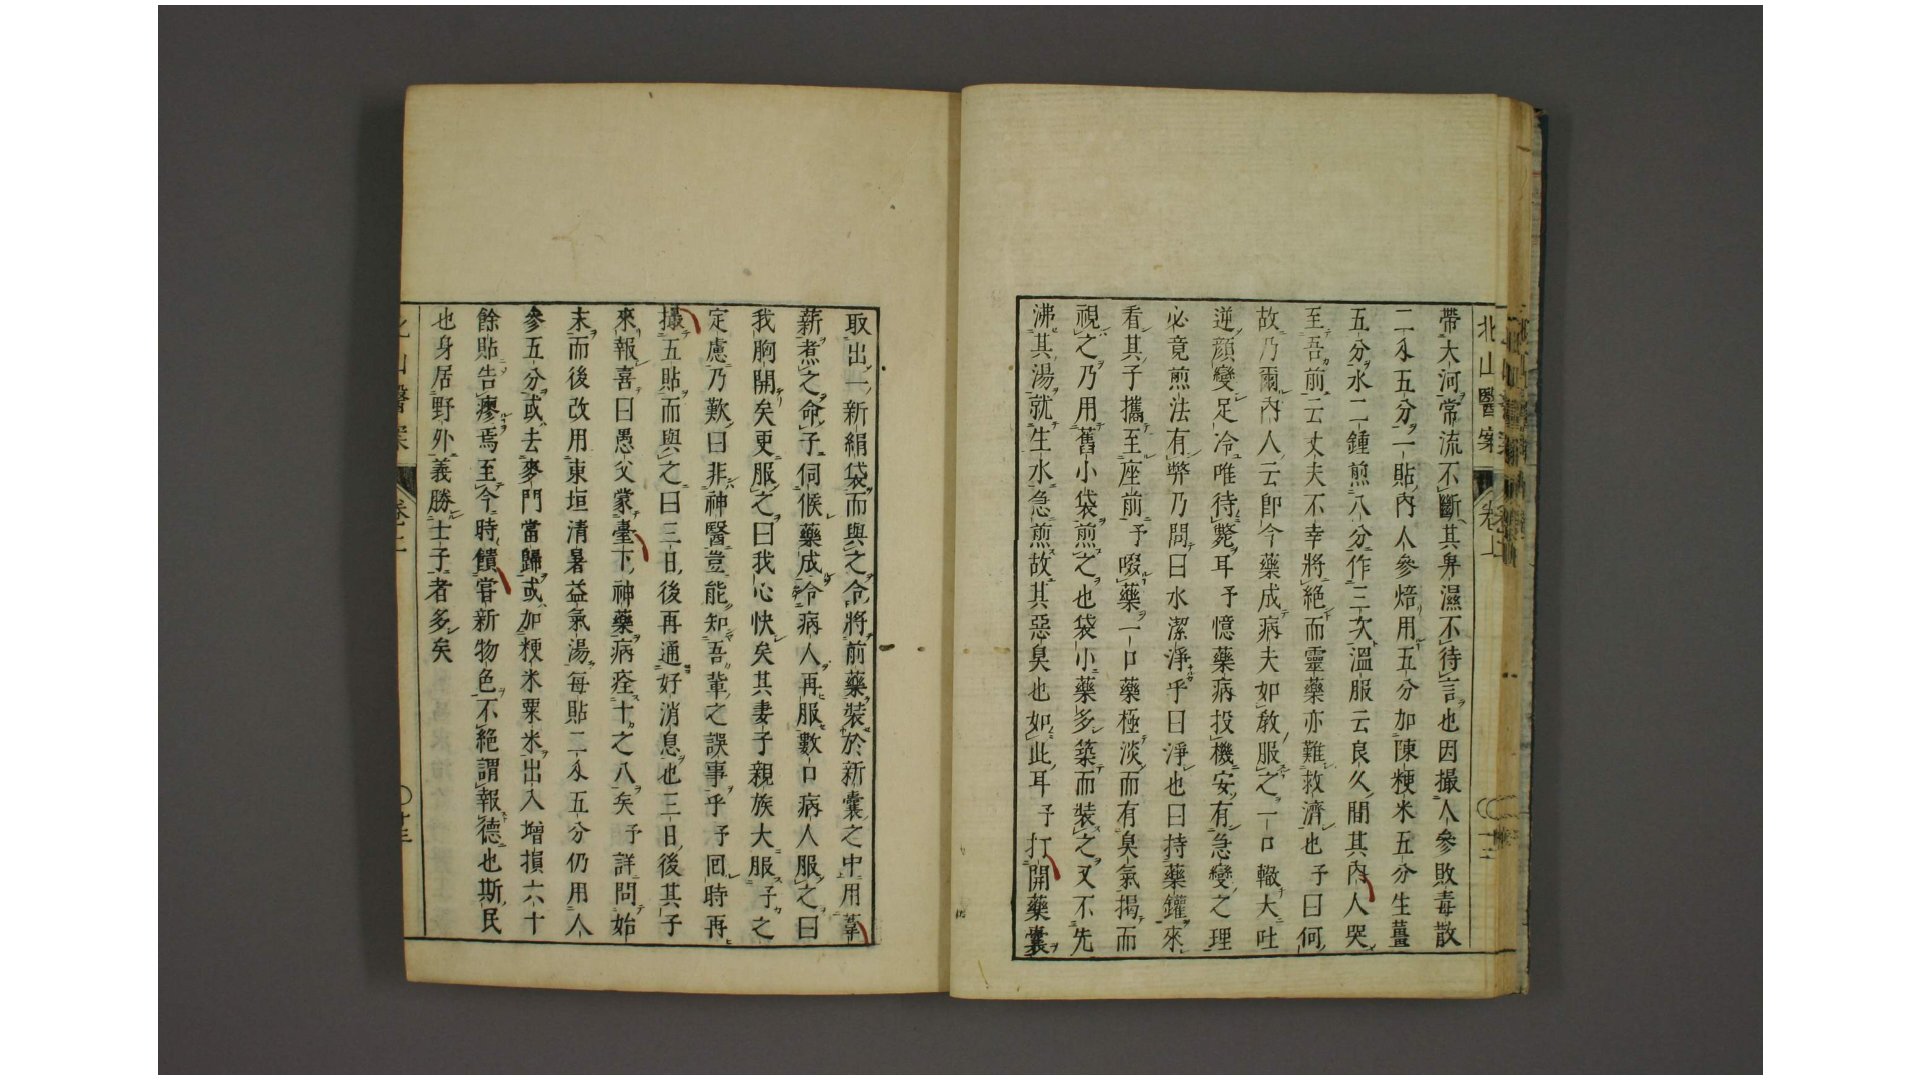 北山醫案 卷上
帶大河常流不斷其界濕不待言也因撮人參敗毒散
二〆五分一貼內人參焙用五分加陳粳米五分生薑
五分水二鍾煎八分作三次溫服云良久間其內人哭
至吾前云丈夫不幸將絕而靈藥亦難救濟也予曰何
故乃爾內人云卽今藥成病夫如敎服之一口輙大吐
逆顏變足冷唯待斃耳予憶藥病投機安有急變之理
必竟煎法有弊乃問曰水潔淨乎曰淨也曰持藥鑵來
看其子攜至座前予啜藥一口藥極淡而有臭氣揭而
視之乃用舊小袋煎之也袋小藥多築而裝之又不先
沸其湯就生水急煎故其惡臭也如此耳予打開藥囊
取出一新絹袋而與之令將前藥裝於新囊之中用葦
薪煮之命子伺候藥成令病人再服數口病人服之曰
我胸開矣更服之曰我心快矣其妻子親族大服予之
定慮乃歎曰非神醫豈能知吾輩之誤事乎予回時再
撮五貼而與之曰三日後再通好消息也三日後其子
來報喜曰愚父蒙臺下神藥病痊十之八矣予詳問始
末而後改用東垣清暑益氣湯每貼二〆五分仍用人
參五分或去麥門當歸或加粳米粟米出入增損六十
餘貼告瘳焉至今時饋嘗新物色不絕謂報德也斯民
也身居野外義勝士子者多矣